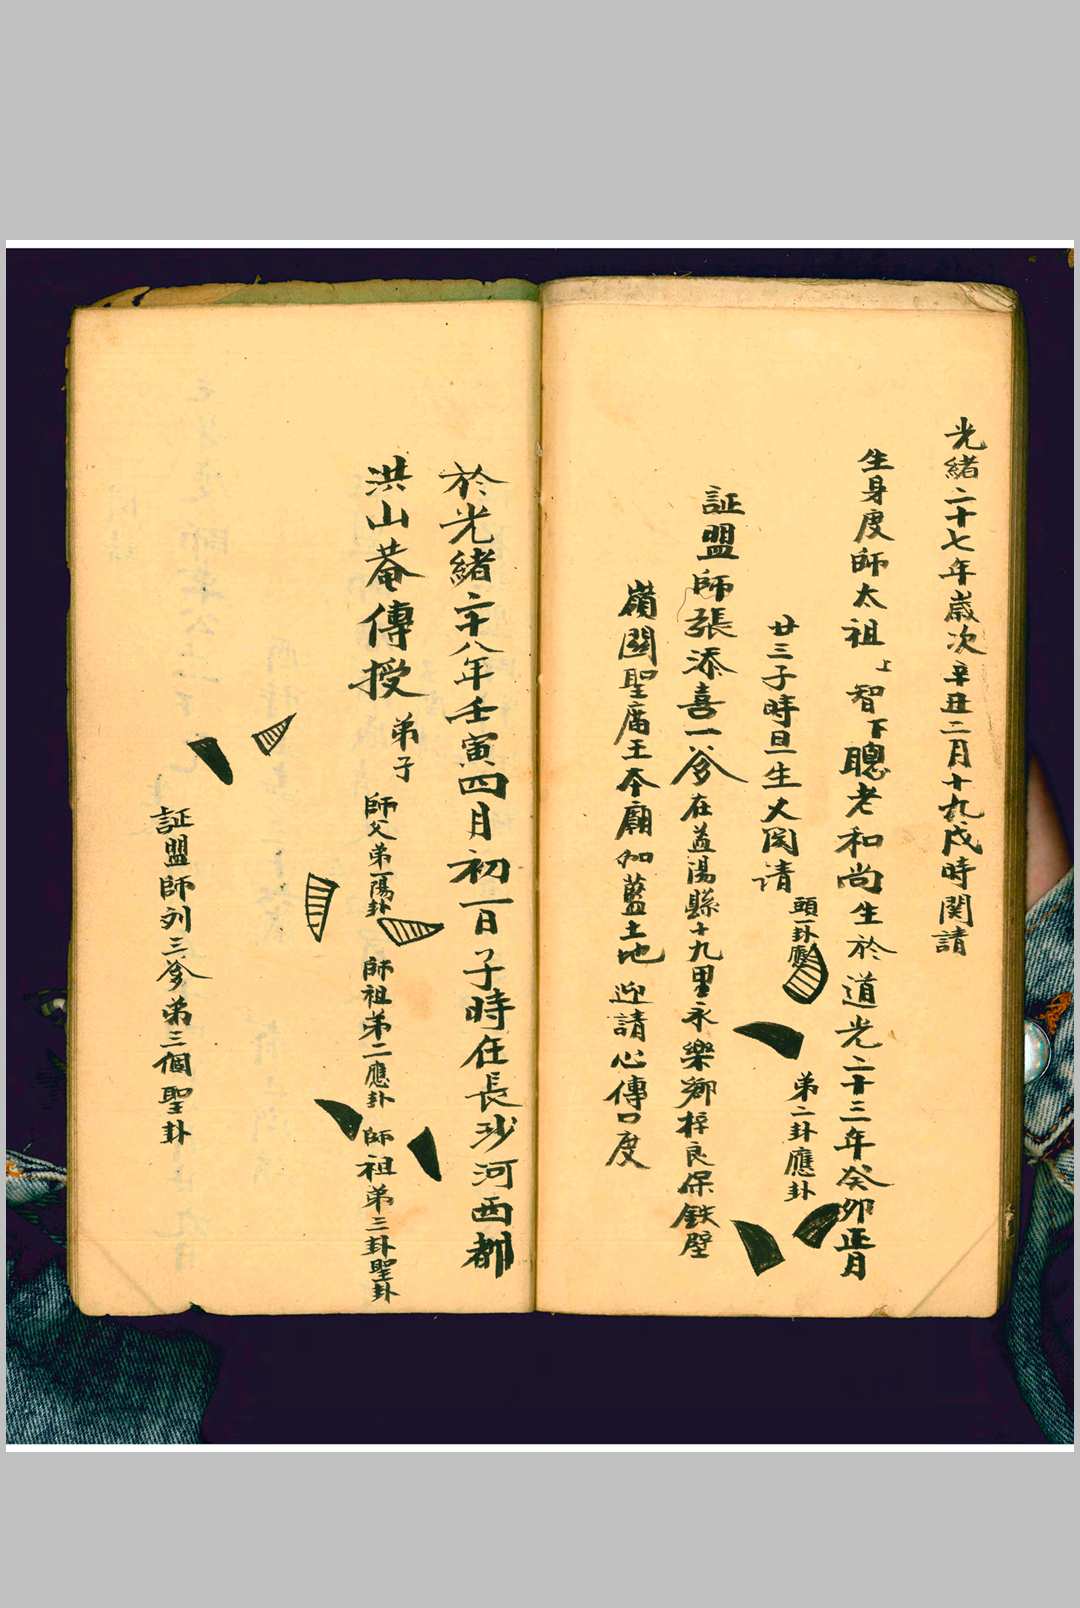 光緒二十七年歲次辛丑二月十九戌時関請
生身度師太祖上智下聰老和尚生於道光二十三年癸卯正月
廿三子時旦生大関请
頭一卦應
第二卦應卦
証盟師張添喜一爷在益陽縣十九里永樂鄉梓良保鉄壁
嶺関聖廟王本廟加藍土地迎請心傳口度
於光緒二十八年壬寅四月初一日子時在長沙河西都
洪山菴傳授弟子
師父弟一陽卦
師祖弟二應卦
師祖弟三卦聖卦
証盟師列三爷弟三個聖卦